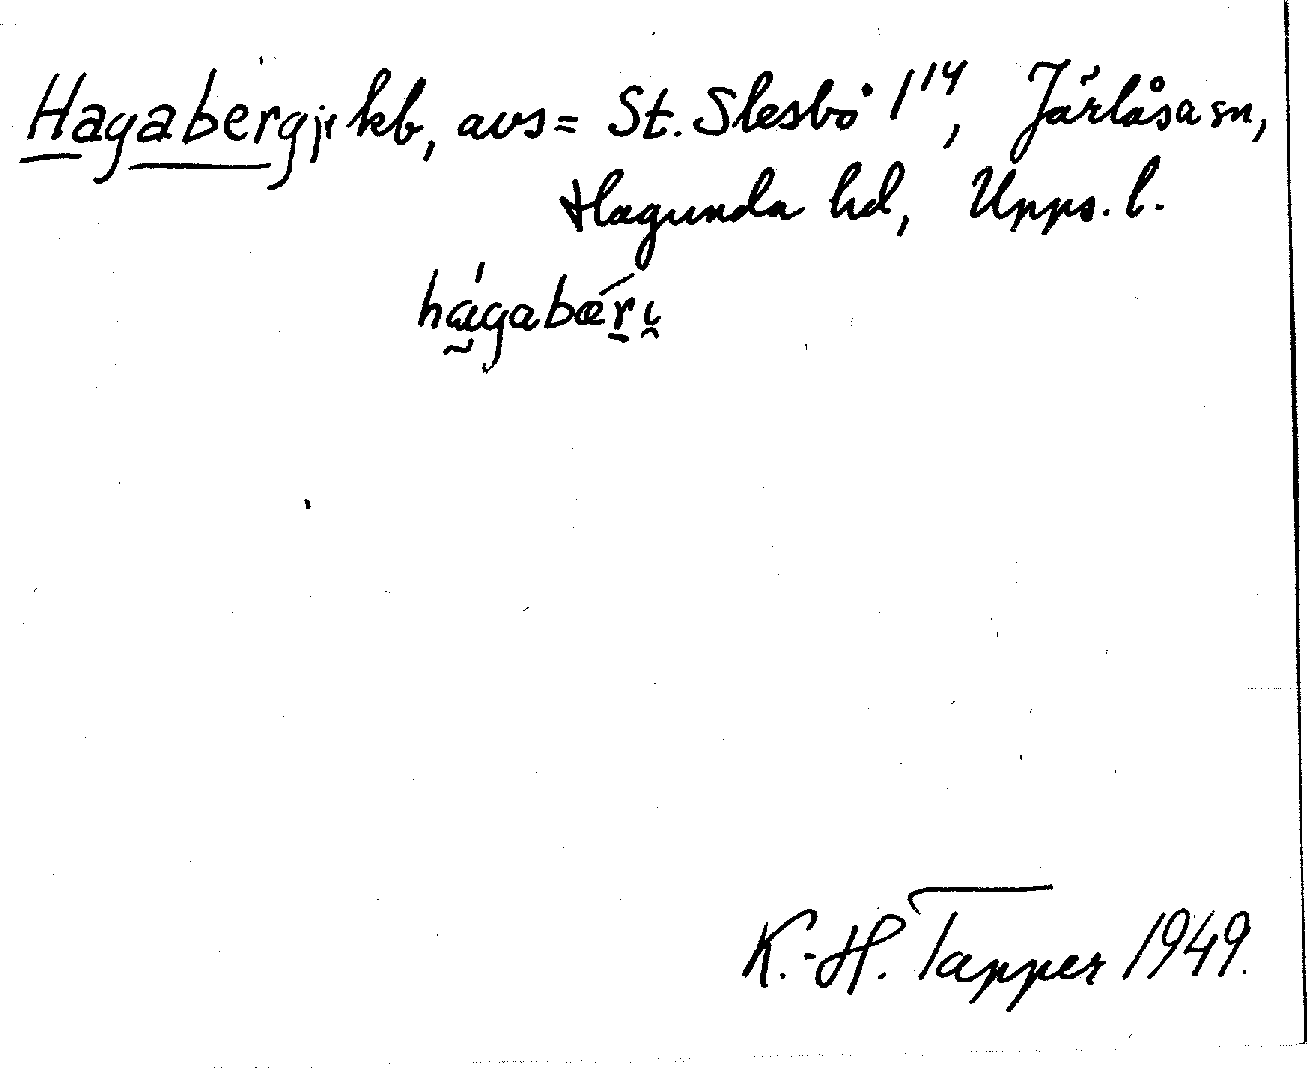 Hagaberg, kb, avs = St. Slesbo 1¹⁴, Järlåsa sn,
Hagunda hd, Upps. l.
hágabǽrı
K.-H. Tapper 1949.